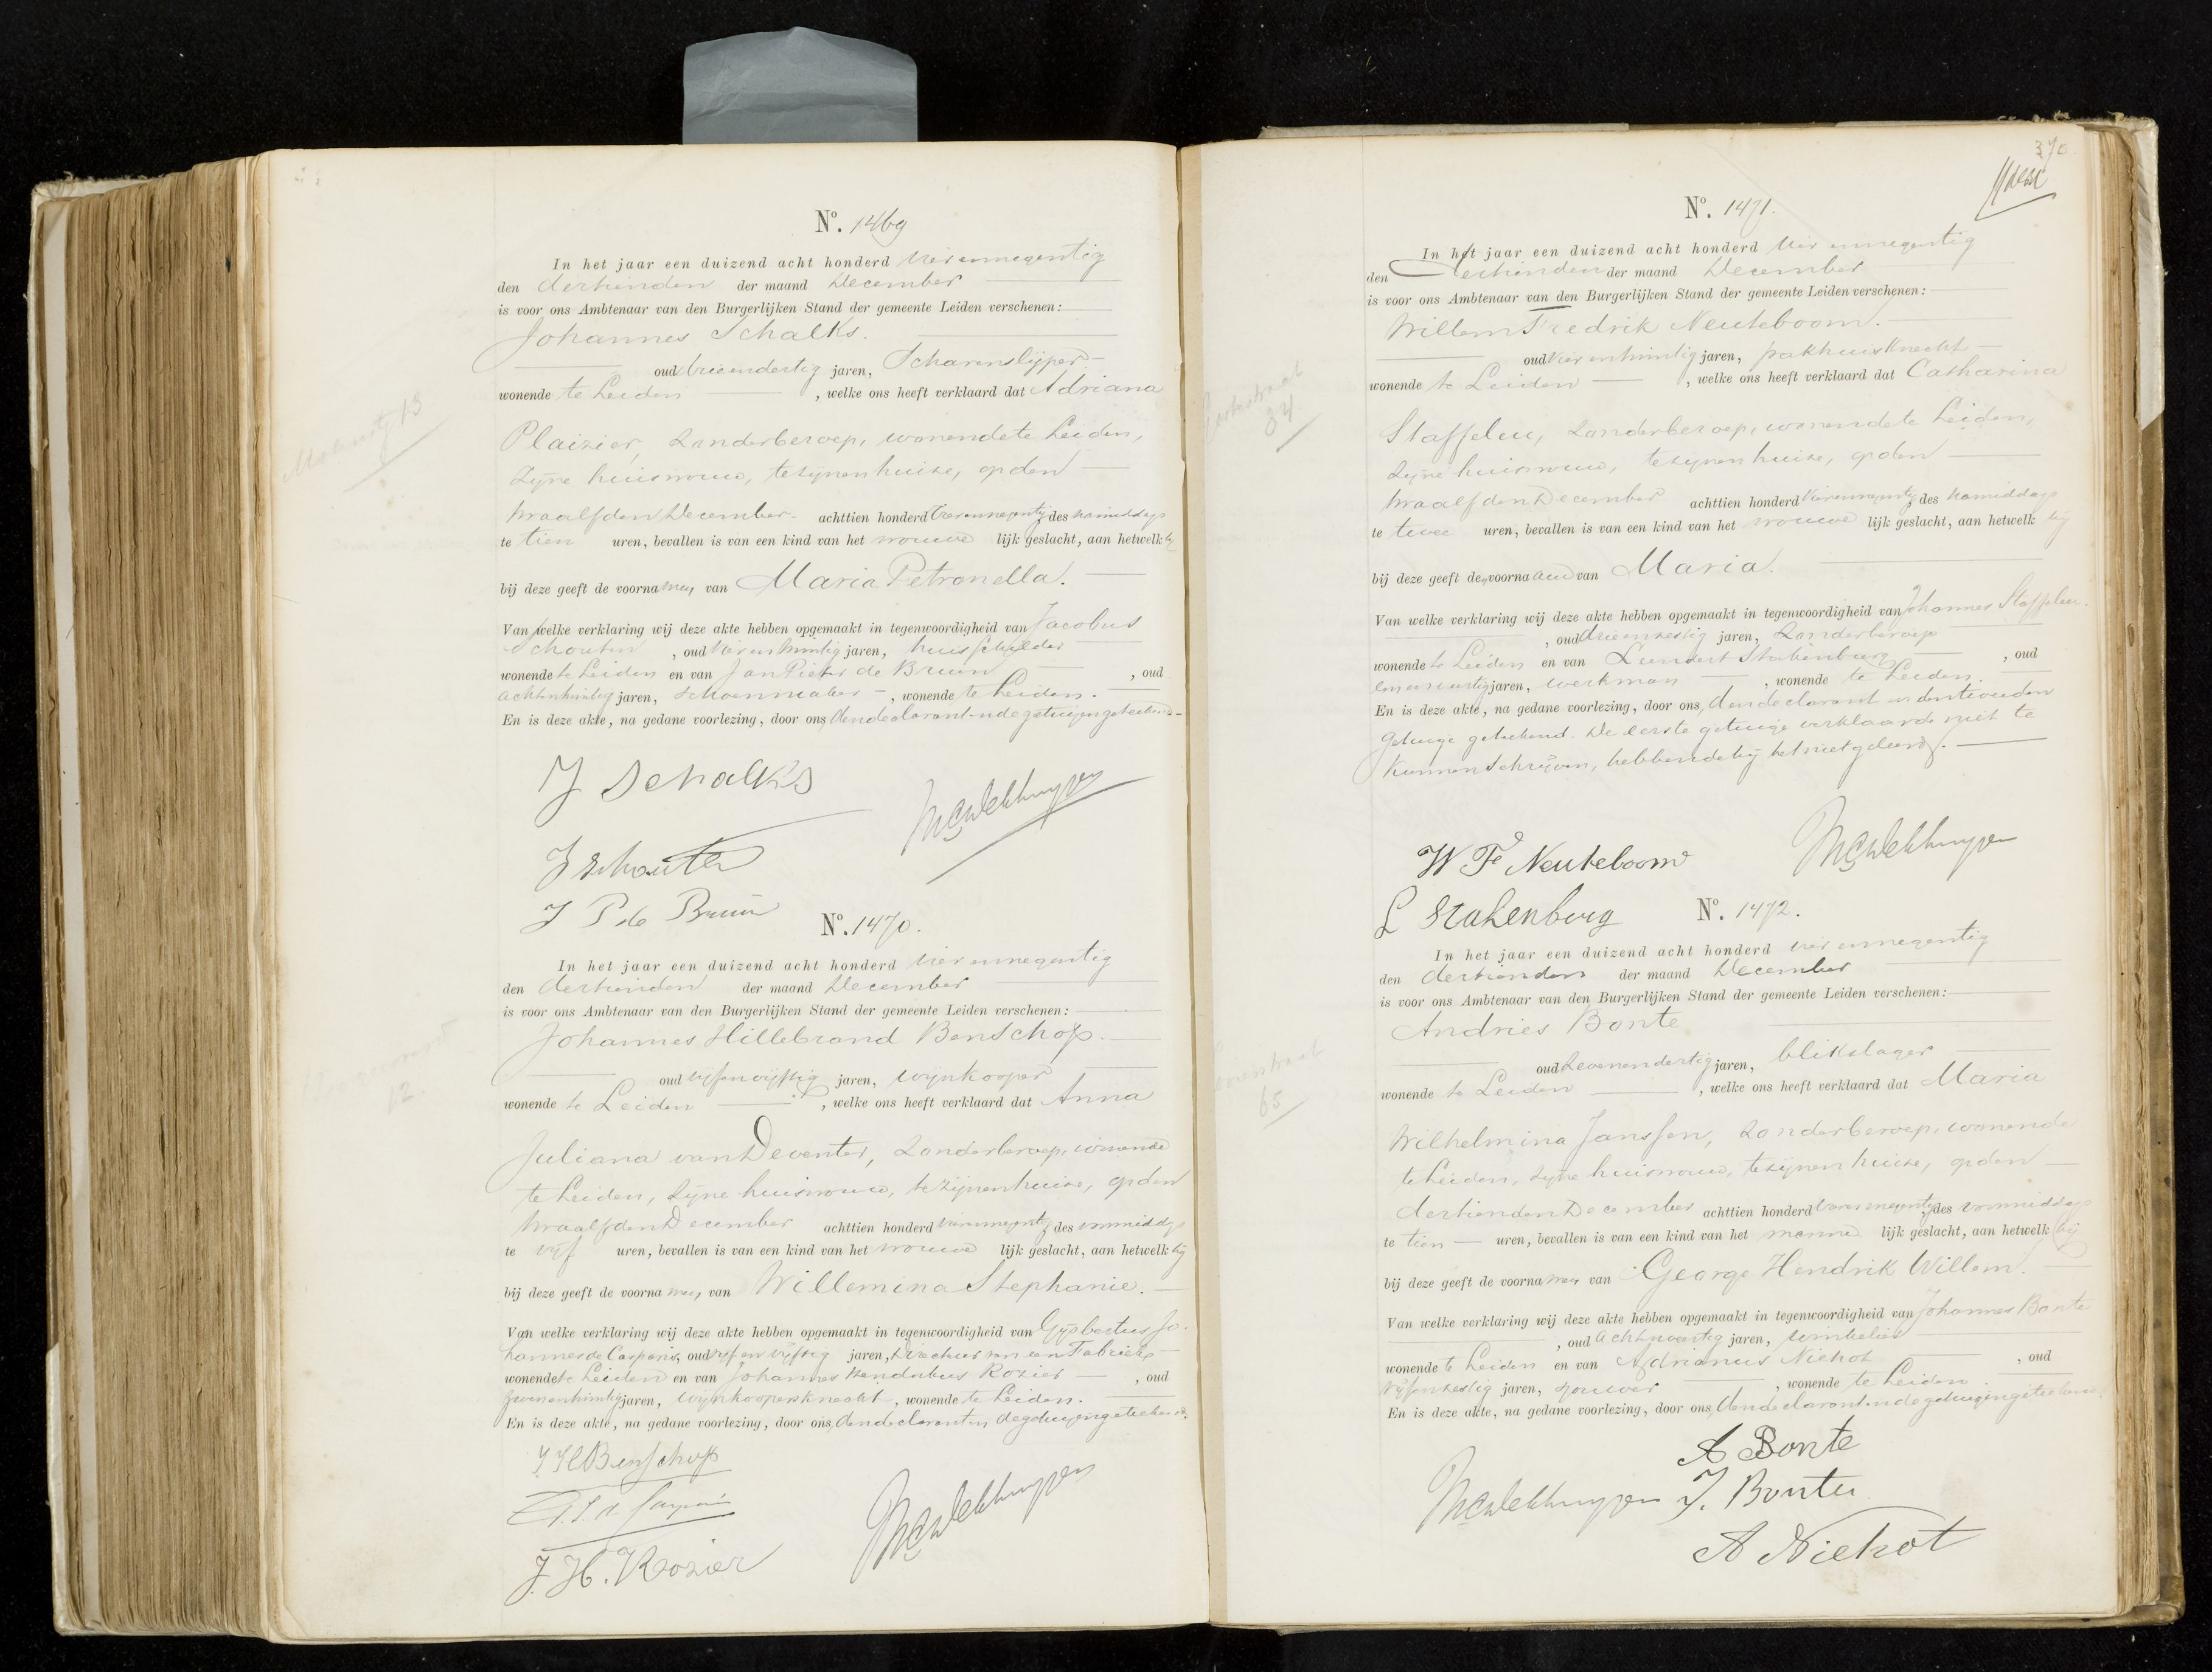 Nº. 1469
In het jaar een duizend acht honderd vier en negentig
den dertienden der maand December
is voor ons Ambtenaar van den Burgerlijken Stand der gemeente Leiden verschenen:
Johannes Schalks.
oud drieendertig jaren, Scharenslijper
wonende te Leiden , welke ons heeft verklaard dat Adriana
Plaizier, zonder beroep, wonende te Leiden,
zijne huisvrouw, te zijnen huize, op den
twaalfden December achttien honderd vierennegentig des namiddags
te tien uren, bevallen is van een kind van het vrouwe lijk geslacht, aan hetwelk hij
bij deze geeft de voorna men van Maria Petronella.
Van welke verklaring wij deze akte hebben opgemaakt in tegenwoordigheid van Jacobus
Schouten , oud vier en twintig jaren, huisschilder
wonende te Leiden en van Jan Pieter de Bruin , oud
achtentwintig jaren, schoenmaker , wonende te Leiden.
En is deze akte, na gedane voorlezing, door ons, den declarant en de getuigen geteekend
J Schalks
J Schouten
J P de Bruin
Nº. 1470.
In het jaar een duizend acht honderd vier en negentig
den dertienden der maand December
is voor ons Ambtenaar van den Burgerlijken Stand der gemeente Leiden verschenen:
Johannes Hillebrand Benschop.
oud vijfenvijftig jaren, wijnkooper
wonende te Leiden , welke ons heeft verklaard dat Anna
Juliana van Deventer, zonder beroep, wonende
te Leiden, zijne huisvrouw, te zijnen huize, op den
twaalfden December achttien honderd vierennegentig des voormiddags
te vijf uren, bevallen is van een kind van het vrouwe lijk geslacht, aan hetwelk hij
bij deze geeft de voorna men van Willemina Stephanie.
Van welke verklaring wij deze akte hebben opgemaakt in tegenwoordigheid van Gijsbertus Jo-
hannes de Casparis, oud vijf en vijftig jaren, Directeur van een Fabriek
wonende te Leiden en van Johannes Rozier , oud
jaren, wijnkoopersknecht , wonende te Leiden.
En is deze akte, na gedane voorlezing, door ons, den declarant en de getuigen geteekend.
J H Benschop
J. H. Rozier
13
12.
370
Nº. 1471.
In het jaar een duizend acht honderd vier en negentig
den dertienden der maand December
is voor ons Ambtenaar van den Burgerlijken Stand der gemeente Leiden verschenen:
Willem Fredrik Neuteboom.
oud vier en twintig jaren, pakhuisknecht
wonende te Leiden , welke ons heeft verklaard dat Catharina
Staffeleu, zonder beroep, wonende te Leiden,
zijne huisvrouw, te zijnen huize, op den
twaalfden December achttien honderd vierennegentig des namiddags
te twee uren, bevallen is van een kind van het vrouwe lijk geslacht, aan hetwelk hij
bij deze geeft de voorna am van Maria.
Van welke verklaring wij deze akte hebben opgemaakt in tegenwoordigheid van Johannes Staffeleu.
, oud drieenzestig jaren, zonder beroep
wonende te Leiden en van Leendert Stakenburg , oud
jaren, werkman , wonende te Leiden.
En is deze akte, na gedane voorlezing, door ons, den declarant en den tweeden
getuige geteekend. De eerste getuige verklaarde niet te
kunnen schrijven, hebbende hij het niet geleerd.
W F Neuteboom
L Stakenburg
Nº. 1472.
In het jaar een duizend acht honderd vier en negentig
den dertienden der maand December
is voor ons Ambtenaar van den Burgerlijken Stand der gemeente Leiden verschenen:
Andries Bonte
oud zevenendertig jaren, blikslager
wonende te Leiden , welke ons heeft verklaard dat Maria
Wilhelmina Janssen, zonder beroep, wonende
te Leiden, zijne huisvrouw, te zijnen huize, op den
dertienden December achttien honderd vierennegentig des voormiddags
te tien uren, bevallen is van een kind van het manne lijk geslacht, aan hetwelk hij
bij deze geeft de voorna men van George Hendrik Willem.
Van welke verklaring wij deze akte hebben opgemaakt in tegenwoordigheid van Johannes Bonte
, oud jaren, winkelier
wonende te Leiden en van Adrianus Niekot , oud
vijfenzestig jaren, sjouwer , wonende te Leiden
En is deze akte, na gedane voorlezing, door ons, den declarant en de getuigen geteekend.
A Bonte
J. Bonte
A Niekot
34
65